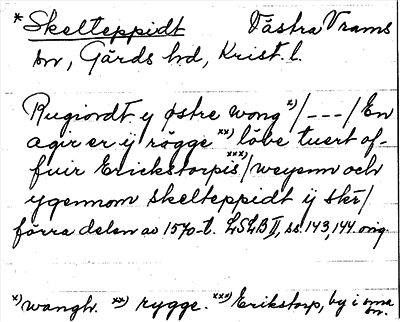 * Skelteppidt Västra Vrams
sn, Gärds hd, Krist. l.
Rugiordt y østre wong x)/---/ En
agir er ij rögge xx) löbe tuert of-
fuir Erickstorpis xxx)/weyenn och
ygennom skelteppidt ij skr/
förra delen av 1570-t. LSLB II, ss. 143, 144 orig.
x) wangh. xx) rygge. xxx) Erikstorp, by i sma
sn.